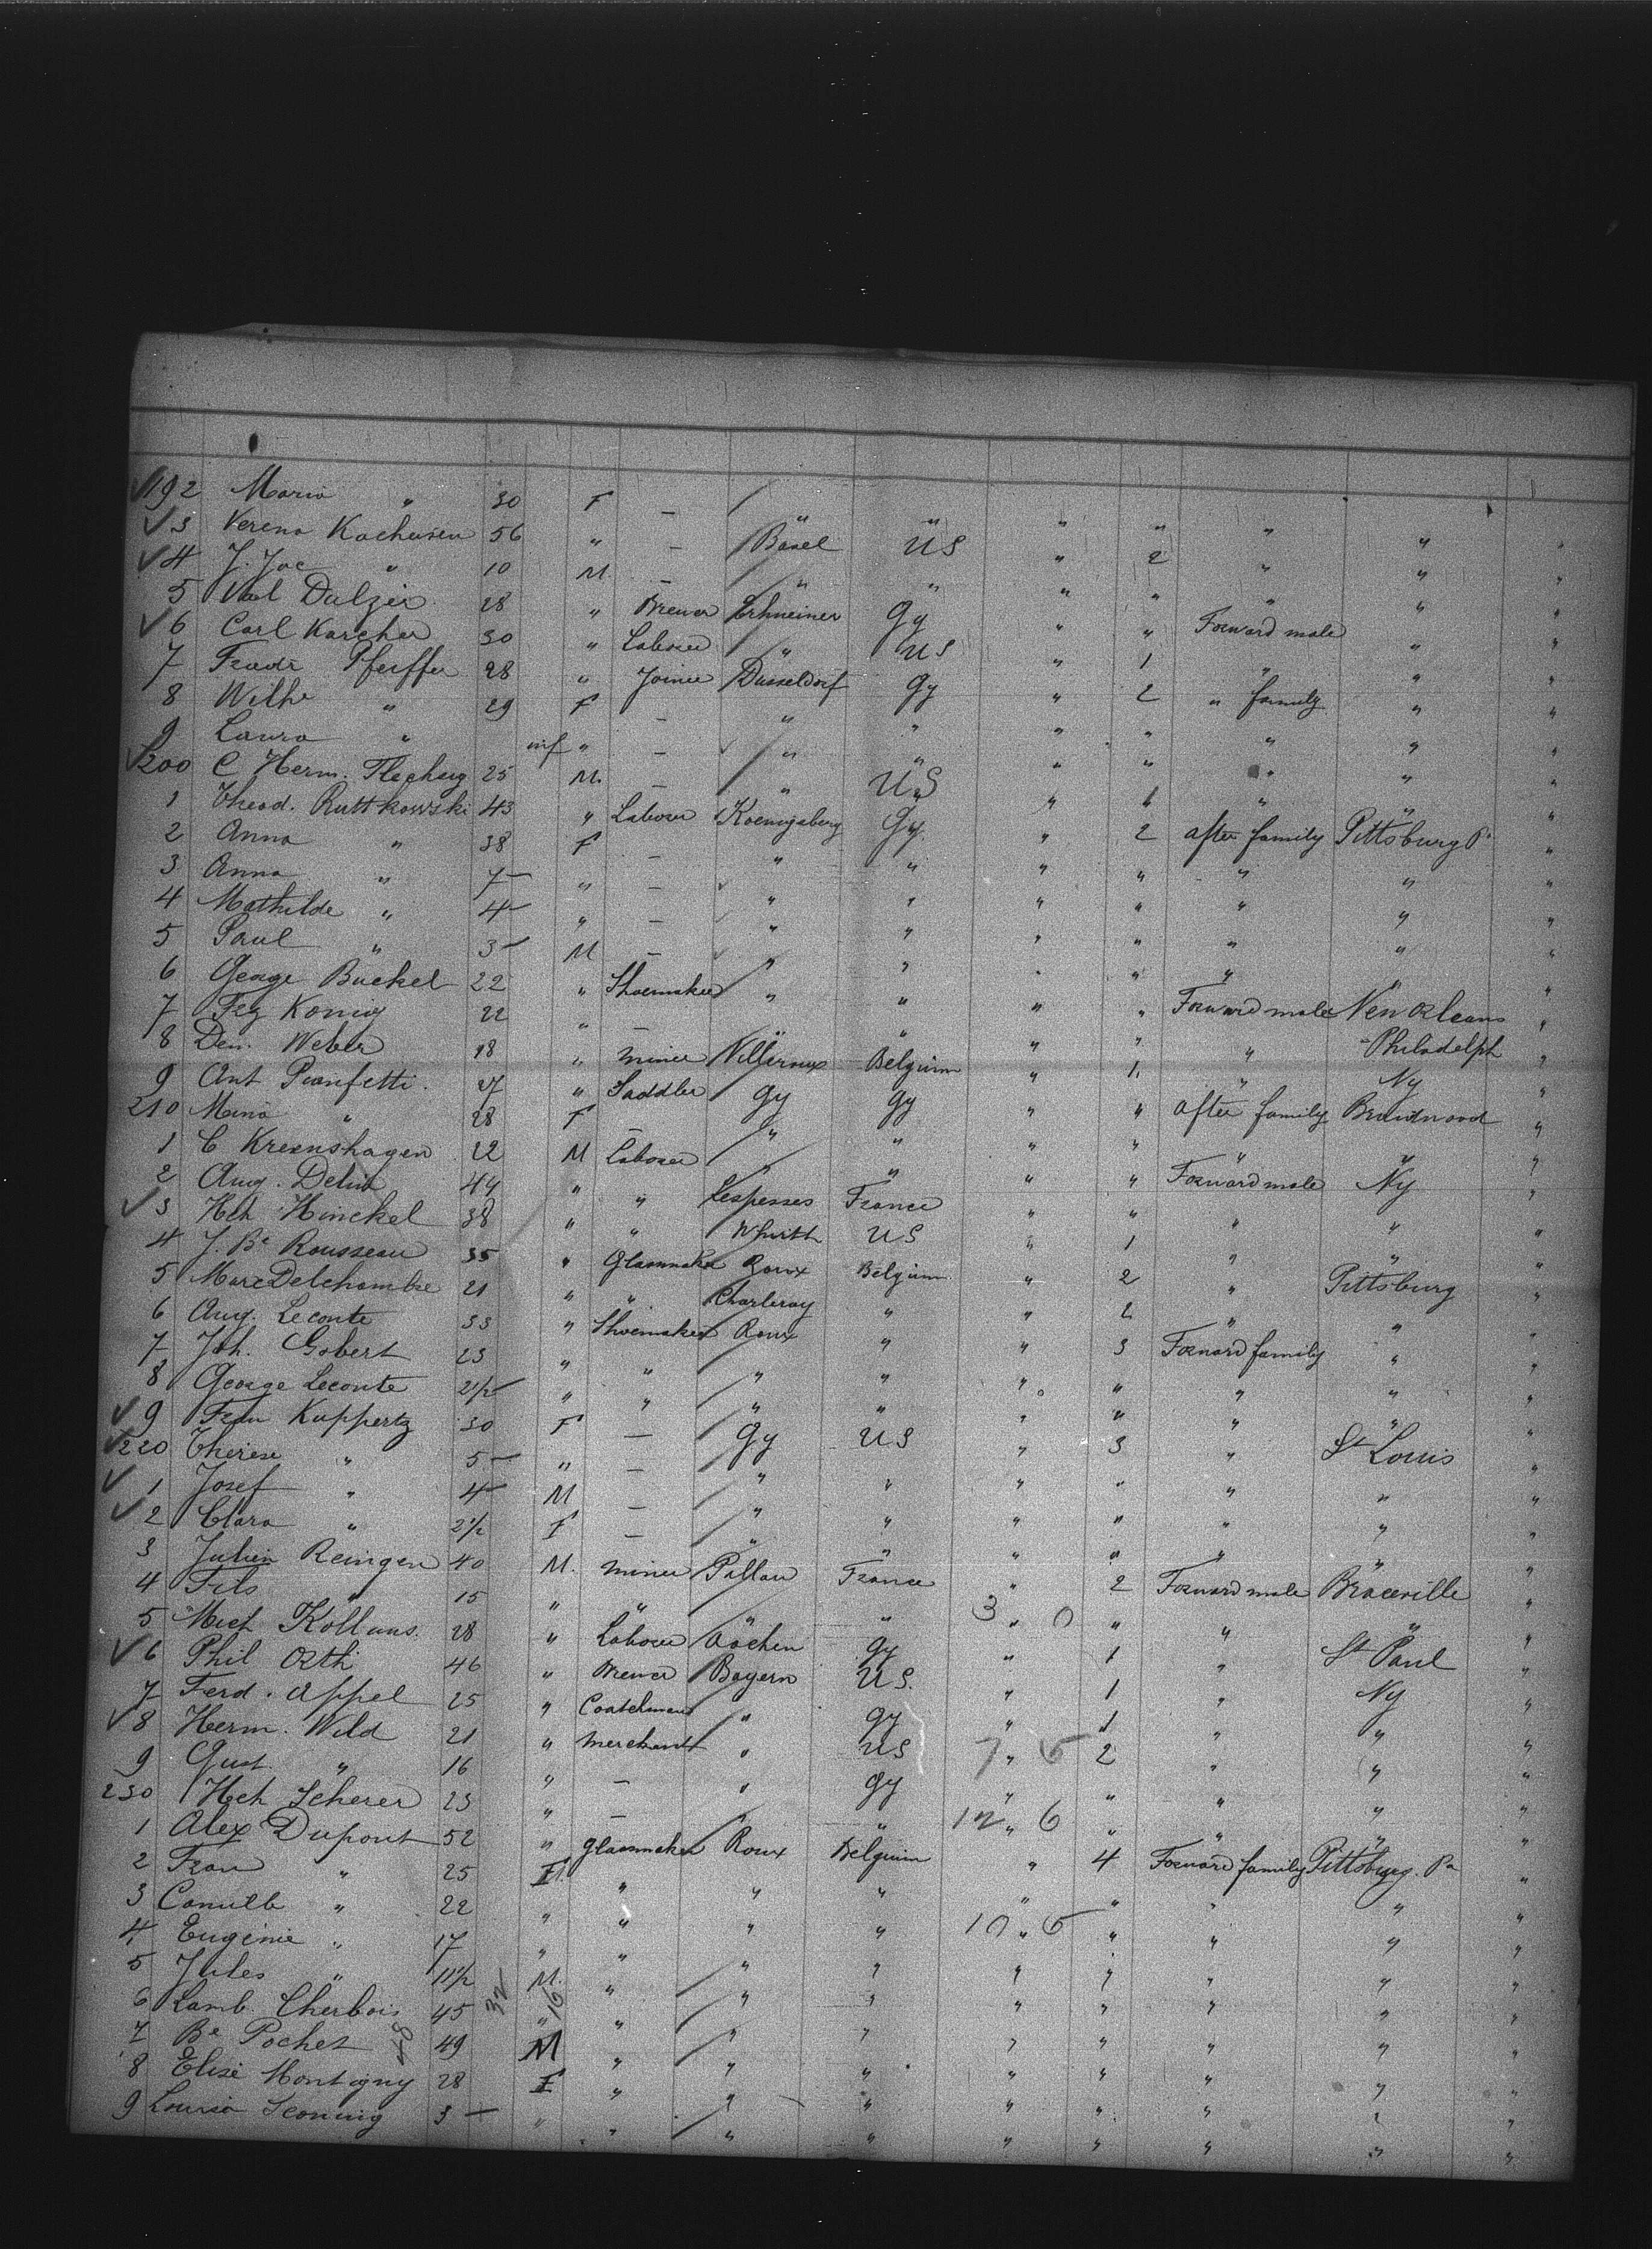 192 Maria " 30 F — " " " " " "
3 Verena Kachusen 56 " — Basel US " 2 " "
4 J. Jac " 10 M — " " " " " "
5 Val Dalzer 28 " Brewer Gy " " Forward male "
6 Carl Karcher 30 " Laborer " US " 1 " "
7 Pfeiffer 28 " Joiner Dusseldorf Gy " 2 " family "
8 Wilhe " 29 F — " " " " " "
9 Laura " inf " — " " " " " "
200 C Herm. 25 M. — " US " 1 " "
1 Theod. Ruttkowski 43 " Laborer Koenigsberg Gy. " 2 after family Pittsburg Pa
2 Anna " 38 F — " " " " " "
3 Anna " 7 " — " " " " " "
4 Mathilde " 4 " — " " " " " "
5 Paul " 3 M — " " " " " "
6 George Buckel 22 " Shoemaker " " " " Forward male New Orleans
7 Konig 22 " — " " " " " Philadelph
8 Den. Weber 18 " miner Belgium " 1 " Ny
9 Ant Pianfetti 27 " Saddler Gy Gy " " after family Braidwood
210 " 28 F — " " " " " "
1 C Kreenshagen 22 M Laborer " " " " Forward male Ny
2 Aug. 44 " " Lespesses France " " " "
3 Hch Hinckel 38 " " US " 1 " "
4 J. Be Rousseau 35 " Glassmaker Roux Belgium " 2 " Pittsburg
5 Marc Delchambre 21 " " Charleroy " " 2 " "
6 Aug. Leconte 33 " Shoemaker Roux " " 3 Forward family "
7 Joh. Gobert 23 " " " " " " " "
8 George Leconte 2 1/2 " " " " " " " "
9 Frau Kuppertz 30 F — Gy US " 3 " St Louis
220 Therese " 5 " — " " " " " "
1 Josef " 4 M — " " " " " "
2 Clara " 2 1/2 F — " " " " " "
3 Julien Reingen 40 M. miner France " 2 Forward male Braceville
4 Fils " 15 " " " " 3 " 0 " " "
5 Mich 28 " Laborer Aachen Gy " 1 " St Paul
6 Phil Orth 46 " Brewer Bayern U.S. " 1 " Ny
7 Ferd. Appel 25 " Coatchman " Gy " 1 " "
8 Herm. Wild 21 " merchant " US 7 " 5 2 " "
9 Gust. " 16 " — " Gy " " " "
230 Hch Scherer 23 " — " " 12 " 6 " " "
1 Alex Dupont 52 " glassmaker Roux Belgium " 4 Forward family Pittsburg. Pa
2 Frau " 25 F. " " " " " " "
3 " 22 " " " " 10 " 5 " " "
4 Eugénie " 17 " " " " " " " "
5 Jules " 11 1/2 M. " " " " " " "
6 Lamb. Cherbois 45 32 " 16 " " " " " " "
7 Be Pochet 48 49 M " " " " " " "
8 Elise Montigny 28 F " " " " " " "
9 Louisa 3 " " " " " " " "